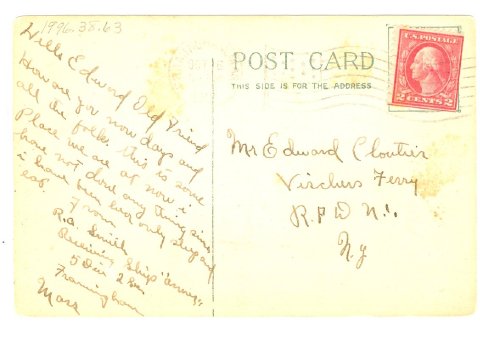 1996.38.63
Wells Edward Old Friend
How are you now days and
all the folks this is some
Place we are at now i
have not done any thing since
i have been her only sleep and
eat.
From
R.A. Smith
Receiving Ship
5 Div 2
Framingham
Mass
POST CARD
THIS SIDE IS FOR THE ADDRESS
U.S. POSTAGE
2 CENTS 2
Mr Edward Cloutier
Vischers Ferry
R.F.D N.1.
N.Y